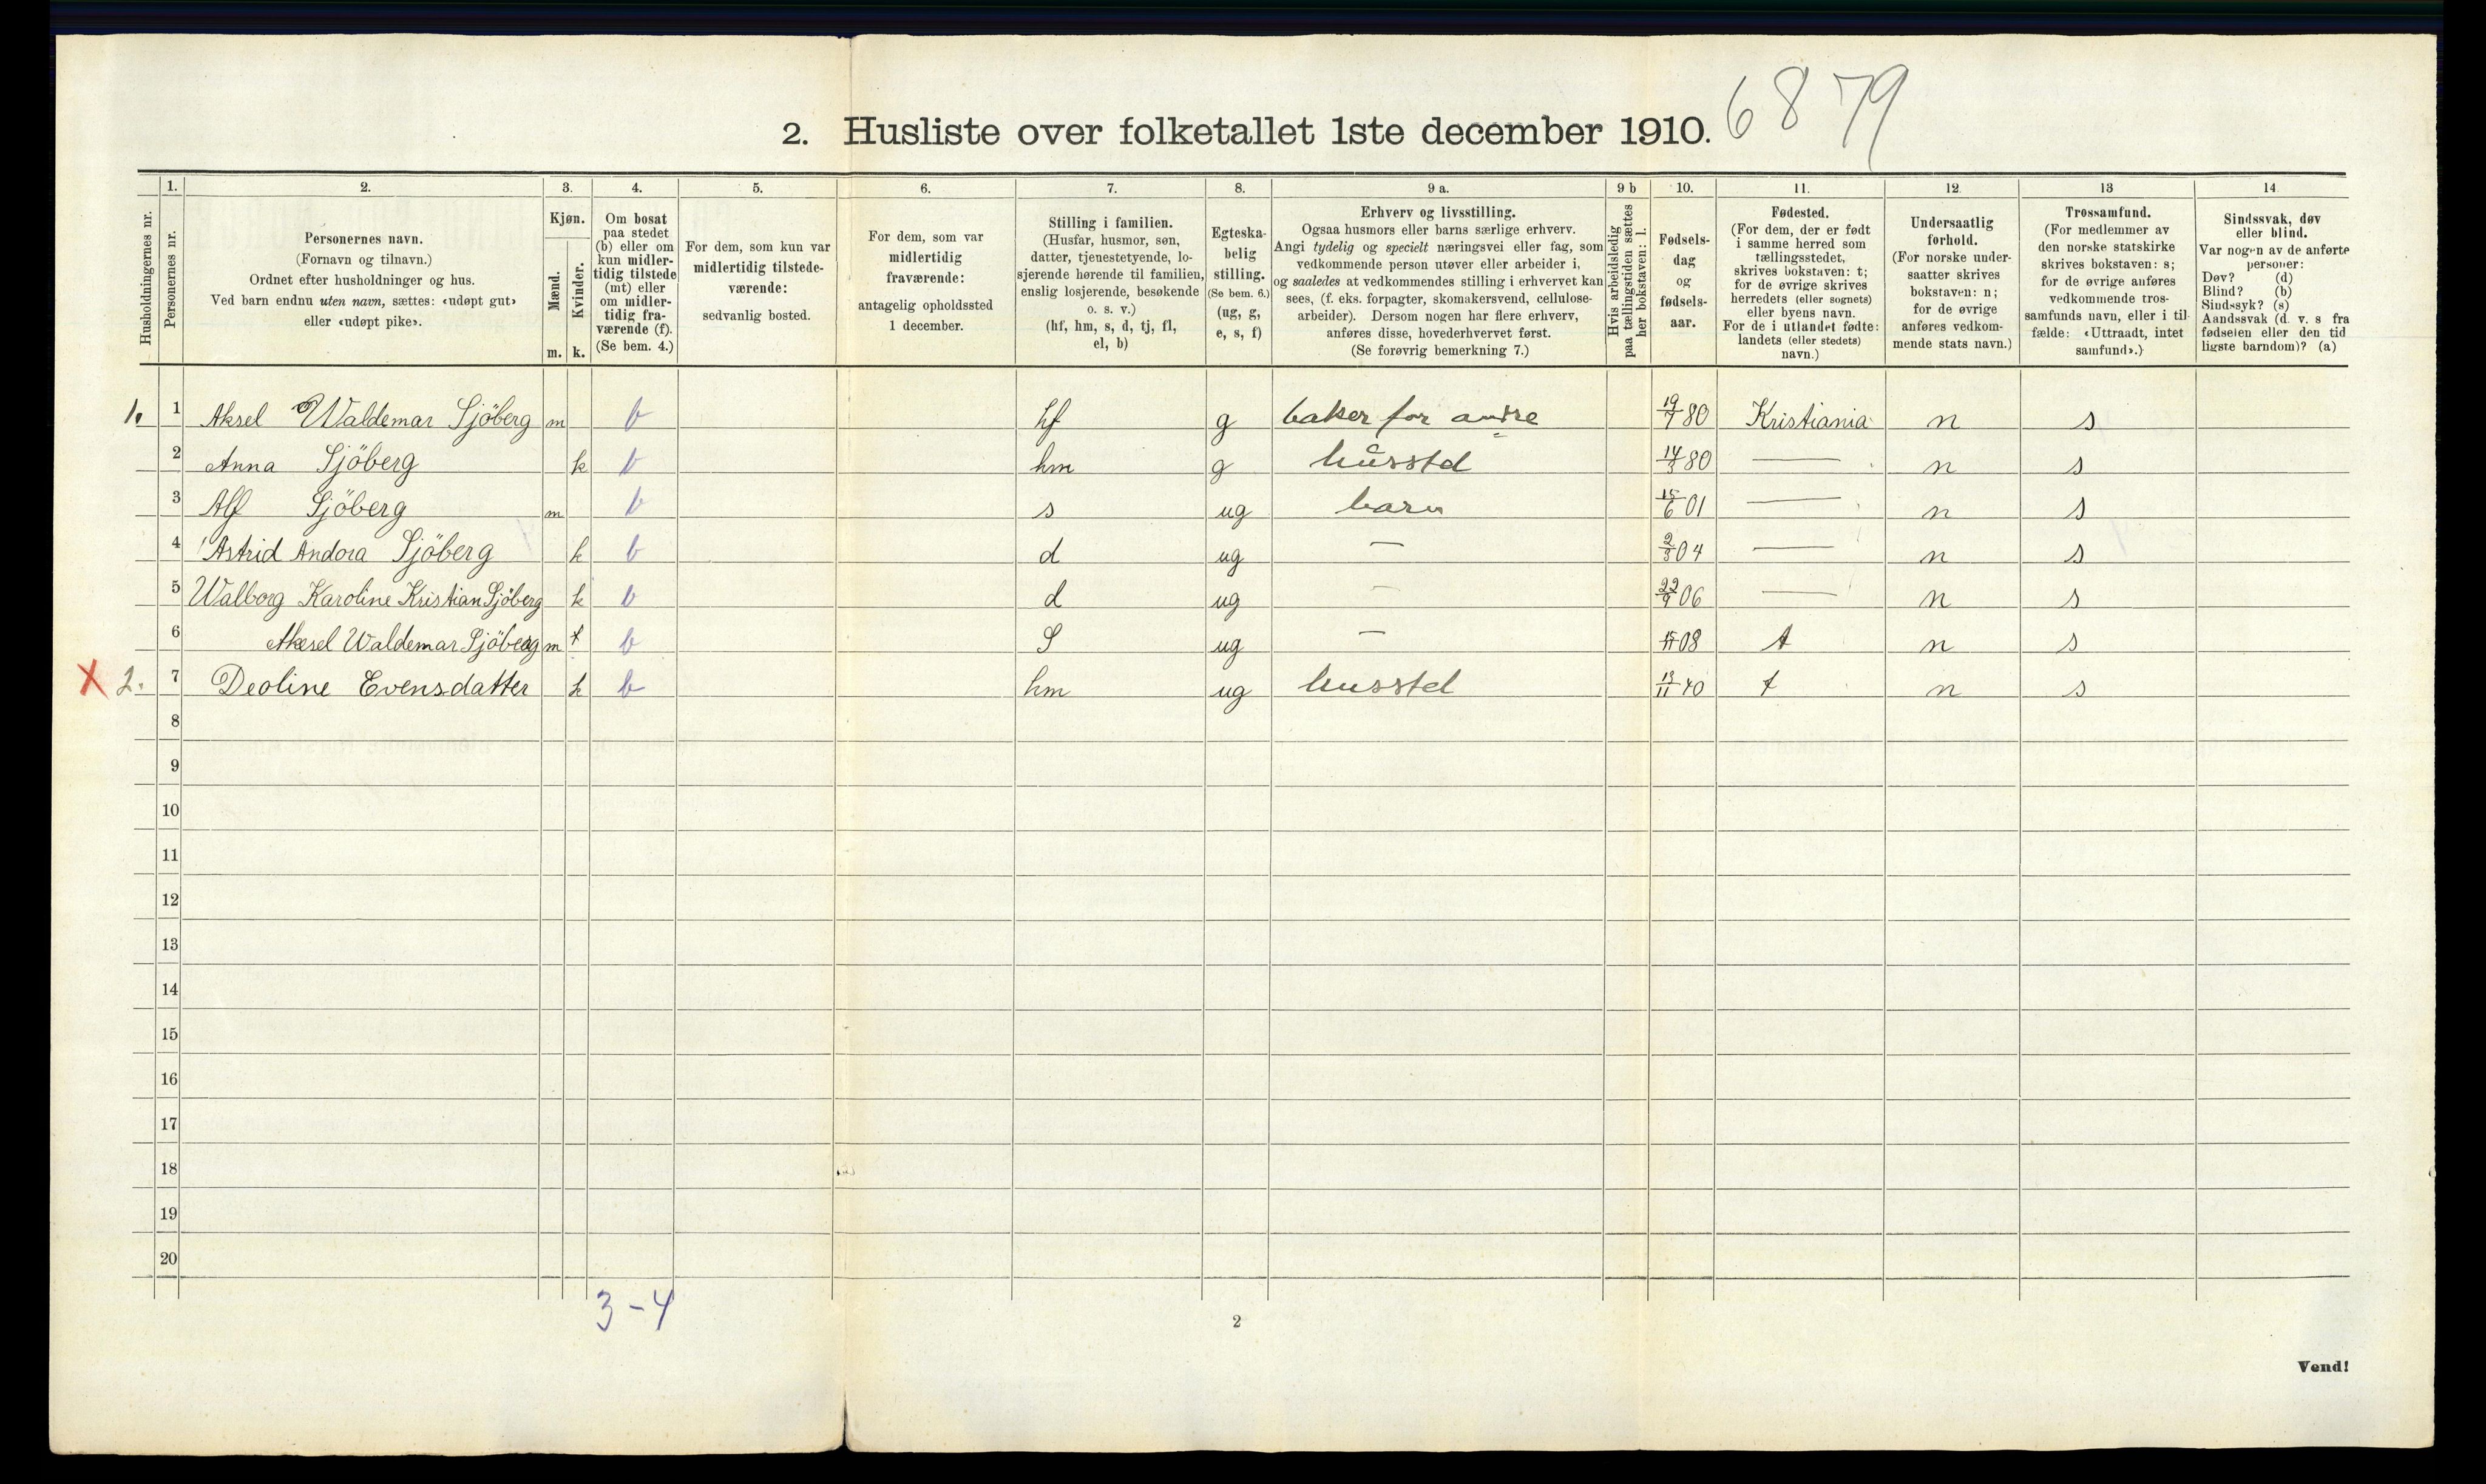 6879
2. Husliste over folketallet 1ste december 1910.
Husholdningernes nr.
1. Personernes nr.
2. Personernes navn. (Fornavn og tilnavn.) Ordnet efter husholdninger og hus. Ved barn endnu uten navn, sættes: «udøpt gut» eller «udøpt pike».
3. Kjøn. Mænd. m. Kvinder. k.
4. Om bosat paa stedet (b) eller om kun midlertidig tilstede (mt) eller om midlertidig fraværende (f). (Se bem. 4.)
5. For dem, som kun var midlertidig tilstedeværende: sedvanlig bosted.
6. For dem, som var midlertidig fraværende: antagelig opholdssted 1 december.
7. Stilling i familien. (Husfar, husmor, søn, datter, tjenestetyende, losjerende hørende til familien, enslig losjerende, besøkende o. s. v.) (hf, hm, s, d, tj, fl, el, b)
8. Egteskabelig stilling. (Se bem. 6.) (ug, g, e, s, f)
9 a. Erhverv og livsstilling. Ogsaa husmors eller barns særlige erhverv. Angi tydelig og specielt næringsvei eller fag, som vedkommende person utøver eller arbeider i, og saaledes at vedkommendes stilling i erhvervet kan sees, (f. eks. forpagter, skomakersvend, cellulosearbeider). Dersom nogen har flere erhverv, anføres disse, hovederhvervet først. (Se forøvrig bemerkning 7.)
9 b Hvis arbeidsledig paa tællingstiden sættes her bokstaven: l.
10. Fødselsdag og fødselsaar.
11. Fødested. (For dem, der er født i samme herred som tællingsstedet, skrives bokstaven: t; for de øvrige skrives herredets (eller sognets) eller byens navn. For de i utlandet fødte: landets (eller stedets) navn.)
12 Undersaatlig forhold. (For norske undersaatter skrives bokstaven: n; for de øvrige anføres vedkommende stats navn.)
13 Trossamfund. (For medlemmer av den norske statskirke skrives bokstaven: s; for de øvrige anføres vedkommende trossamfunds navn, eller i tilfælde: «Uttraadt, intet samfund».)
14 Sindssvak, døv eller blind. Var nogen av de anførte personer: Døv? (d) Blind? (b) Sindssyk? (s) Aandssvak (d. v. s fra fødselen eller den tidligste barndom)? (a)
1. 1 Aksel Waldemar Sjöberg m b hf g baker for andre 19/7 80 Kristiania n s
2 Anna Sjöberg k b hm g husstel 14/3 80 — n s
3 Alf Sjöberg m b s ug barn 15/6 01 — n s
4 Astrid Andora Sjöberg k b d ug — 2/3 04 — n s
5 Walborg Karoline Kristian Sjöberg k b d ug — 22/9 06 — n s
6 Aksel Waldemar Sjöberg m b S ug — 15/11 08 t n s
X 2. 7 Deoline Evensdatter k b hm ug husstel 13/11 40 t n s
8
9
10
11
12
13
14
15
16
17
18
19
20
3-4
2
Vend!